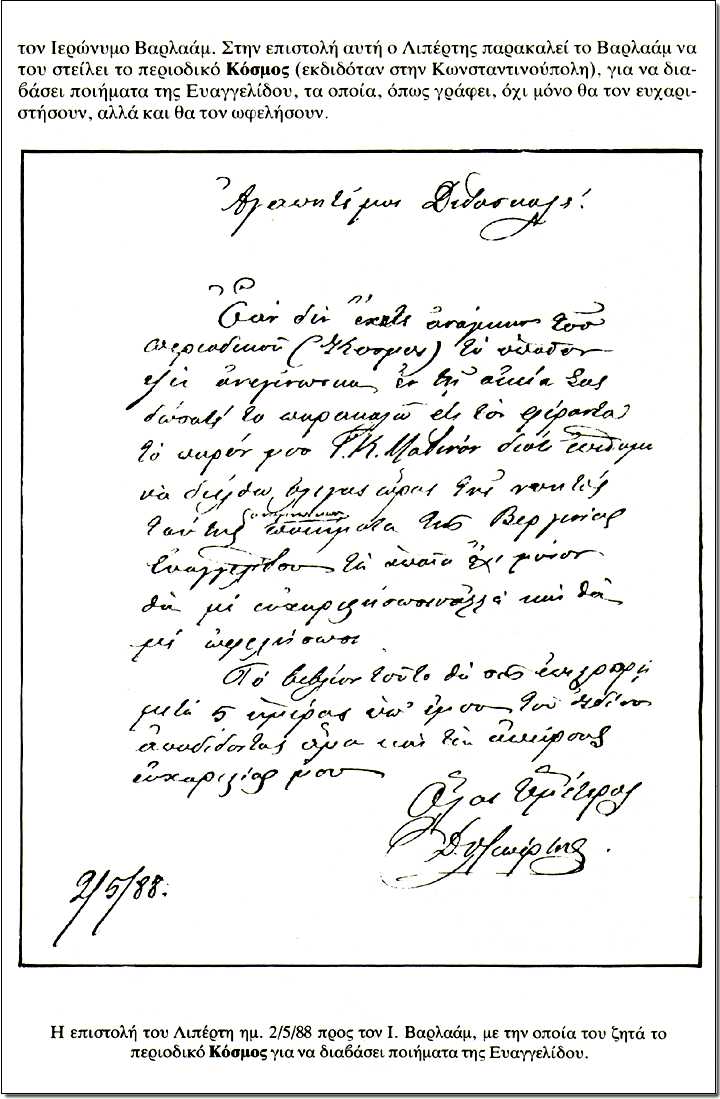 τον Ιερώνυμο Βαρλαάμ. Στην επιστολή αυτή ο Λιπέρτης παρακαλεί το Βαρλαάμ να
του στείλει το περιοδικό Κόσμος (εκδιδόταν στην Κωνσταντινούπολη), για να δια-
βάσει ποιήματα της Ευαγγελίδου, τα οποία, όπως γράφει, όχι μόνο θα τον ευχαρι-
στήσουν, αλλά και θα τον ωφελήσουν.
Ἀγαπητέ μοι Διδάσκαλε!
Ἐὰν δὲν ἔχετε ἀνάγκην τοῦ
περιοδικοῦ (Κόσμος) τὸ ὁποῖον
ἀνεγίνωσκα ἐν τῇ οἰκίᾳ σας
δώσατέ το παρακαλῶ εἰς τὸν φέροντα
τὸ παρόν μου Γ. Κ. διότι ἐπιθυμῶ
νὰ διέλθω ὀλίγας ὥρας τῆς νυκτὸς
ταύτης ποιήματα τῆς Βεργινίας
Εὐαγγελίδου τὰ ὁποῖα ὄχι μόνον
θὰ μὲ εὐχαριστήσωσιν ἀλλὰ καὶ θὰ
μὲ ὠφελήσωσι
Τὸ βιβλίον τοῦτο θὰ σᾶς ἐπιστραφῇ
μετὰ 5 ἡμέρας ὑπ' ἐμοῦ τοῦ ἰδίου
ἀποδίδοντας ἅμα καὶ τὰς ἀπείρους
εὐχαριστίας μου
Ὅλος Ὑμέτερος
Δ. Λιπέρτης.
2/5/88.
Η επιστολή του Λιπέρτη ημ. 2/5/88 προς τον Ι. Βαρλαάμ, με την οποία του ζητά το
περιοδικό Κόσμος για να διαβάσει ποιήματα της Ευαγγελίδου.